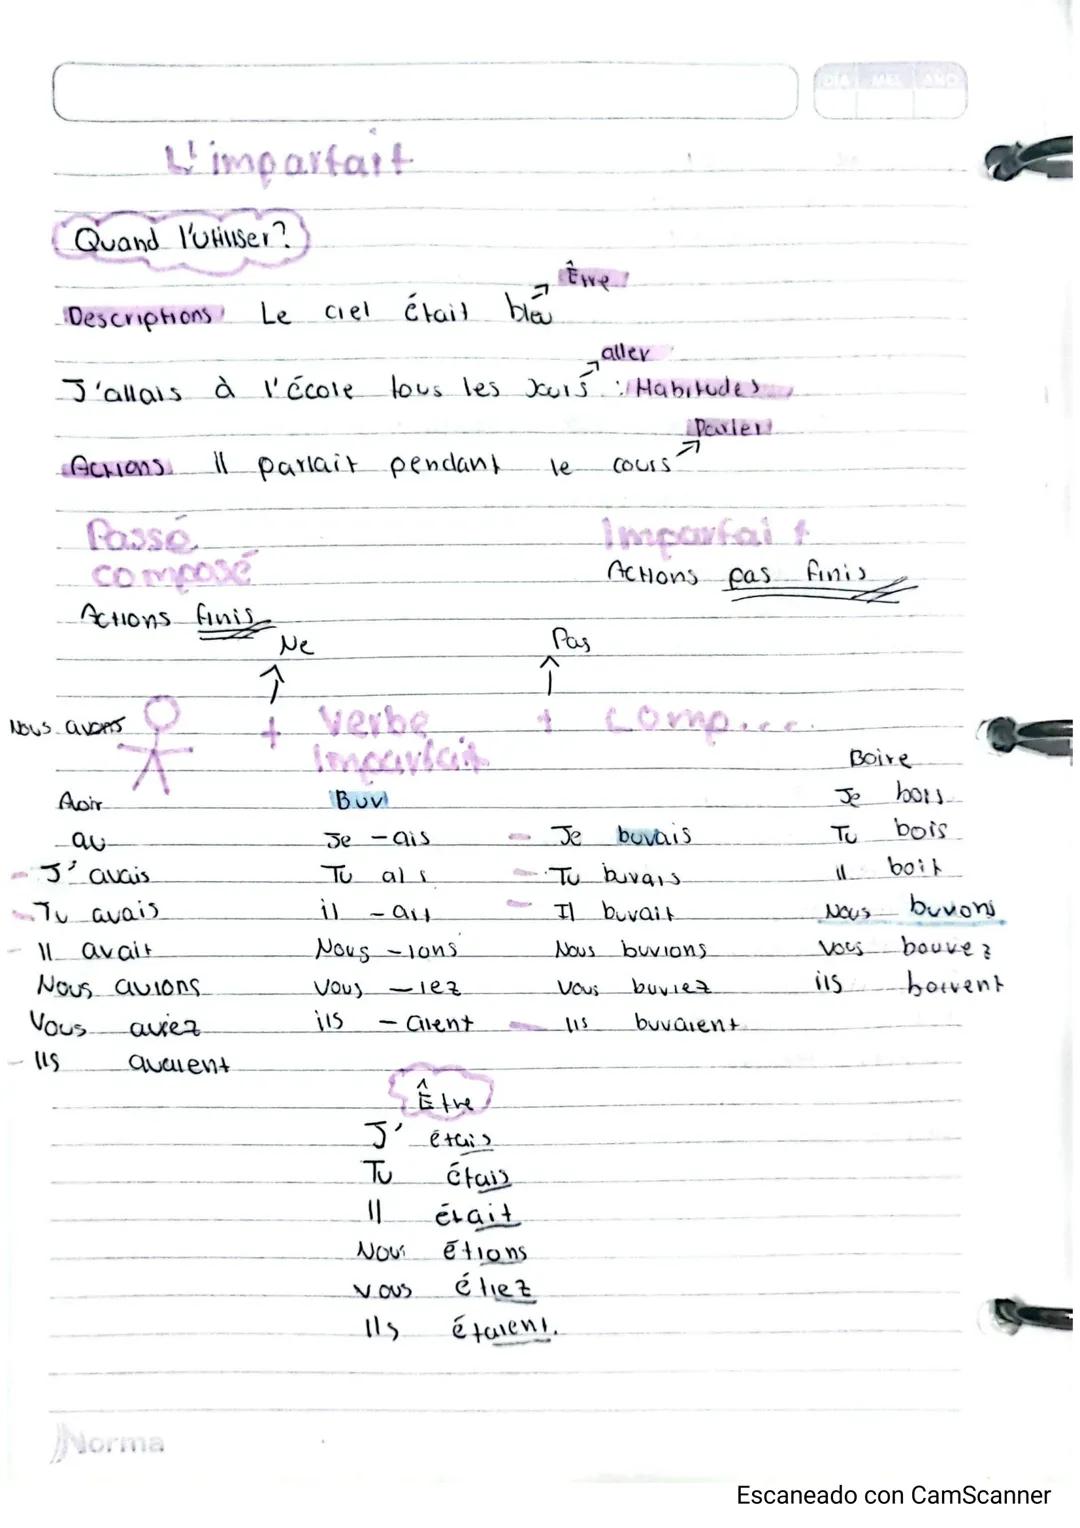 DIA MES AÑO
L'imparfait
Quand l'utiliser?
Être
Descriptions Le ciel était bleu
aller
J'allais à l'école tous les Jours : Habitudes
Parler
Actions Il parlait pendant le cours
Passé Imparfait
composé Actions pas finis
Actions finis
Ne Pas
Nous avons + Verbe + Comp....
Imparfait
Boire
Aoir Buv Je bois
av Je -ais Je buvais Tu bois
J' avais Tu ais Tu buvais Il boit
Tu avais il -ait Il buvait Nous buvons
Il avait Nous -ions Nous buvions Vous bouvez
Nous avions Vous -iez Vous buviez ils boivent
Vous aviez ils -aient Ils buvaient
Ils avaient
Être
J' étais
Tu étais
Il était
Nous étions
Vous étiez
Ils étaient.
Norma
Escaneado con CamScanner